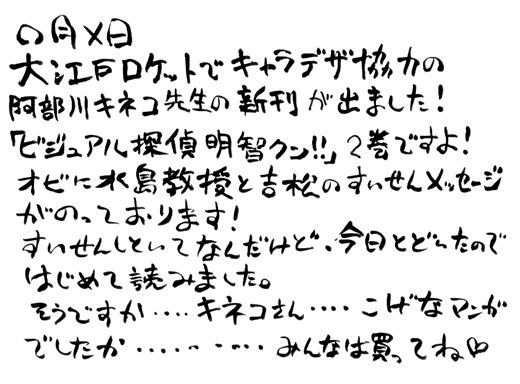 〇月×日
大江戸ロケットでキャラデザ協力の
阿部川キネコ先生の新刊が出ました!
「ビジュアル探偵明智クン!!」2巻ですよ!
オビに水島教授と吉松のすいせんメッセージ
がのっております!
すいせんしといてなんだけど、今日とどいたので
はじめて読みました。
そうですか‥‥キネコさん‥‥こげなマンガ
でしたか‥‥‥‥‥みんなは買ってね♡